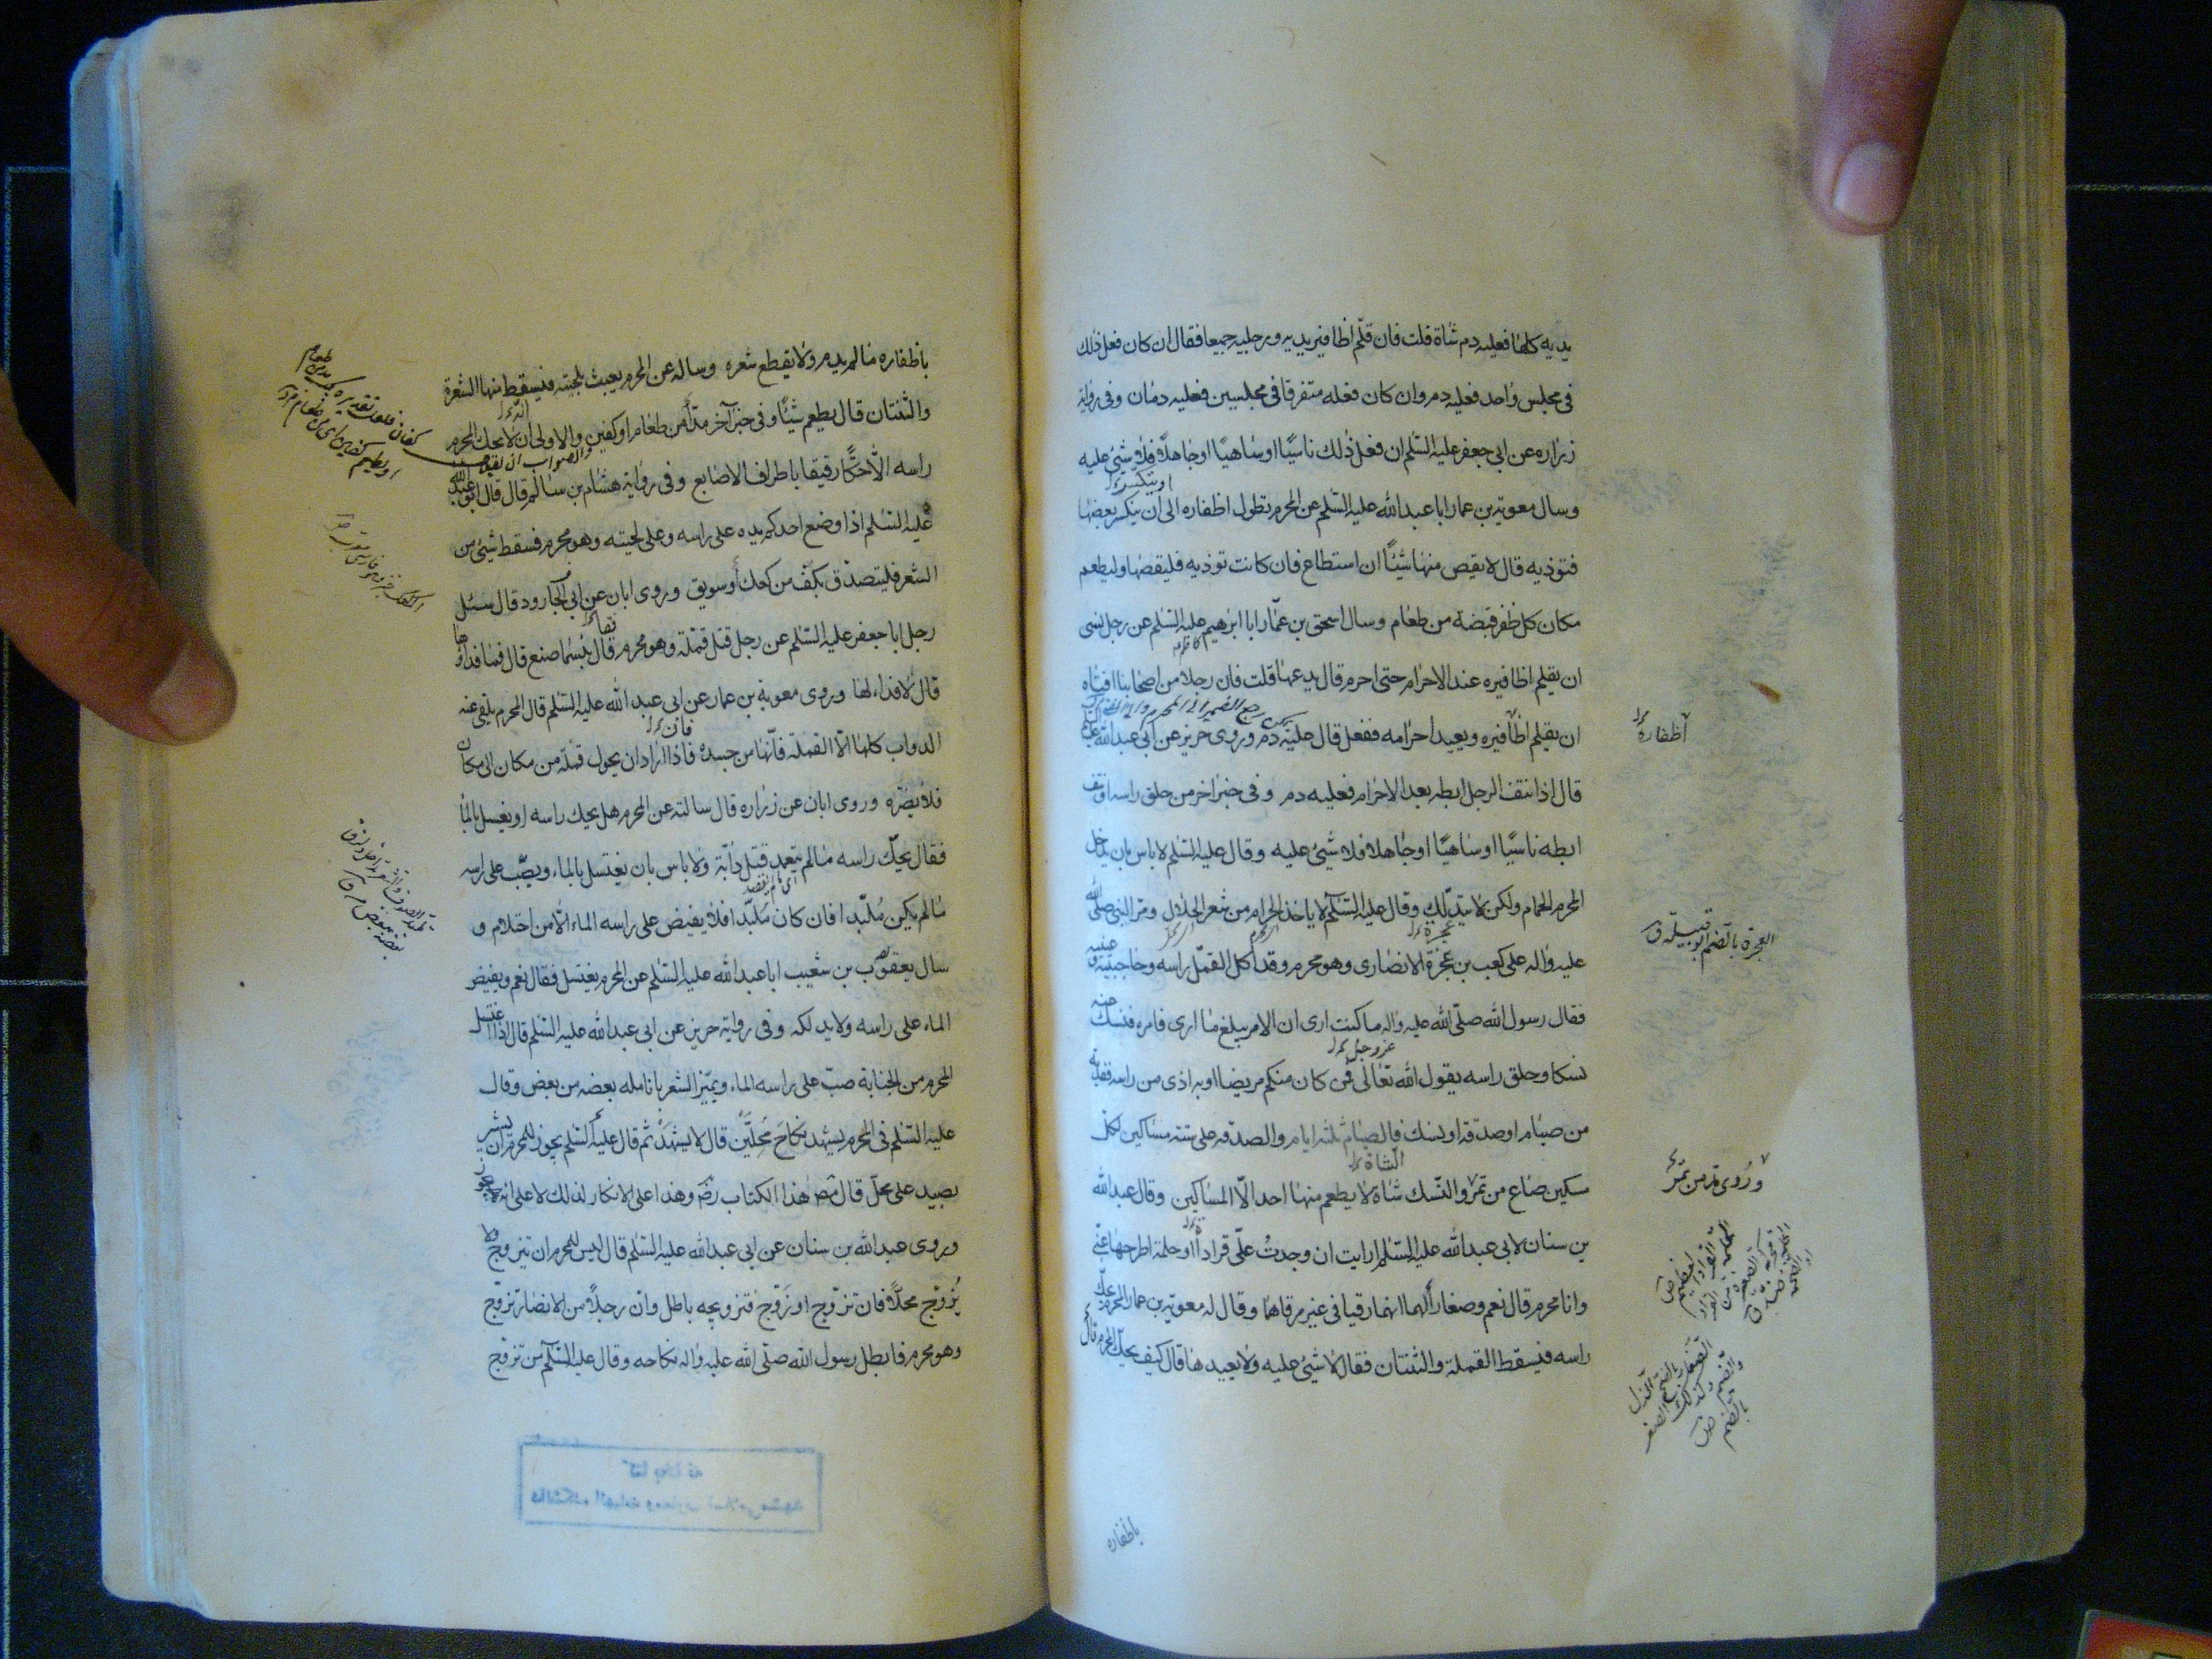 يديه كلها فعليه دم شاة قلت فان قلّم اظافير يديه ورجليه جميعا فقال ان كان فعل ذلك
في مجلس واحد فعليه دم وان كان فعله متفرقا في مجلسين فعليه دمان وفي رواية
زرارة عن ابي جعفر عليه السّلم ان فعل ذلك ناسيًا او ساهيًا او جاهلًا فلا شيئ عليه
وسال معوية بن عمار ابا عبد الله عليه السّلم عن المحرم تطول اظفاره الى ان ينكسر بعضها
فتوذيه قال لا يقص منها شيئًا ان استطاع فان كانت توذيه فليقصها وليطعم
مكان كل ظفر قبضة من طعام وسال اسحق بن عمّار ابا ابرهيم عليه السّلم عن رجل نسى
ان يقلم اظافيره عند الاحرام حتى احرم قال يدعها قلت فان رجلا من اصحابنا افتاه
ان يقلم اظافيره ويعيد احرامه ففعل قال عليه دم وروى حريز عن ابي عبد الله
قال اذا نتف الرجل ابطه بعد الاحرام فعليه دم وفي خبر اخر من حلق راسه او نتف
ابطه ناسيًا او ساهيًا او جاهلا فلا شيئ عليه وقال عليه السّلم لا باس بان يدخل
المحرم الحمام ولكن لا يتدلّك وقال عليه السّلم لا ياخذ الحرام من شعر الحلال ومرّ النبي صلى الله
عليه واله على كعب بن عجرة الانصارى وهو محرم وقد اكل القمّل راسه وحاجبيه وعينيه
فقال رسول الله صلّى الله عليه واله ما كنت ارى ان الامر يبلغ ما ارى فامره فنسك عنه
نسكا وحلق راسه يقول الله تعالى فمن كان منكم مريضا او به اذى من راسه ففدية
من صيام او صدقة او نسك فالصيام ثلثة ايام والصدقة على ستة مساكين لكل
مسكين صاع من تمر والنّسك شاة لا يطعم منها احد الّا المساكين وقال عبد الله
بن سنان لابي عبد الله عليه السّلم ارايت ان وجدتُ علىّ قرادًا او حلمة اطرحهما عنّي
وانا محرم قال نعم وصغار لهما انهما رقيا في غير مرقاهما وقال له معوية بن عمار المحرم يحكّ
راسه فيسقط القملة والثنتان فقال لا شيئ عليه ولا يعيدها قال كيف يحكّ المحرم قال
او ينكسر
عجرة
عزوجل
الشاة
اظفاره
العجرة بالضم ابو قبيلة ق
وروى مد من تمر
باظفاره
باظفاره ما لم يدم ولا يقطع شعره وساله عن المحرم يعبث بلحيته فيسقط منها الشعرة
والثنتان قال يطعم شيئًا وفي خبر آخر مدّا من طعام او كفين والاولى ان لا يحك المحرم
راسه الّا حكًّا رقيقا باطراف الاصابع وفي رواية هشام بن سالم قال قال ابو عبد الله
عليه السّلم اذا وضع احدكم يده على راسه وعلى لحيته وهو محرم فسقط شيئ من
الشعر فليتصدّق بكفّ من كعك او سويق وروى ابان عن ابي الجارود قال سئل
رجل ابا جعفر عليه السّلم عن رجل قتل قملة وهو محرم قال بئسما صنع قال فما فداؤها
قال لا فداء لها وروى معوية بن عمار عن ابي عبد الله عليه السّلم قال المحرم يلقى عنه
الدواب كلها الّا القملة فانّها من جسده فاذا اراد ان يحول قملة من مكان الى مكان
فلا يضرّه وروى ابان عن زراره قال سالته عن المحرم هل يحك راسه او يغسل بالماء
فقال يحكّ راسه ما لم يتعمد قتل دابّة ولا باس بان يغتسل بالماء ويصبّ على راسه
ما لم يكن مُلبّدا فان كان مُلبّدا فلا يفيض على راسه الماء الّا من احتلام و
سال يعقوب بن شعيب ابا عبد الله عليه السّلم عن المحرم يغتسل فقال نعم ويفيض
الماء على راسه ولا يدلكه وفي رواية حريز عن ابي عبد الله عليه السّلم قال اذا اغتسل
المحرم من الجنابة صبّ على راسه الماء ويميّز الشعر بانامله بعضه من بعض وقال
عليه السّلم في المحرم يشهد نكاحَ مُحِلَّيْن قال لا يشهد ثم قال عليه السّلم يجوز للمحرم ان يشير
بصيد على محلّ قال مص هذا الكتاب رض وهذا على الانكار لذلك لا على انه يجوز
وروى عبد الله بن سنان عن ابي عبد الله عليه السّلم قال ليس للمحرم ان يتزوج ولا
يُزوّج محلًا فان تزوّج او زَوّج فتزويجه باطل وانّ رجلًا من الانصار تزوّج
وهو محرم فابطل رسول الله صلّى الله عليه واله نكاحه وقال عليه السّلم من تزوّج
والصواب ان